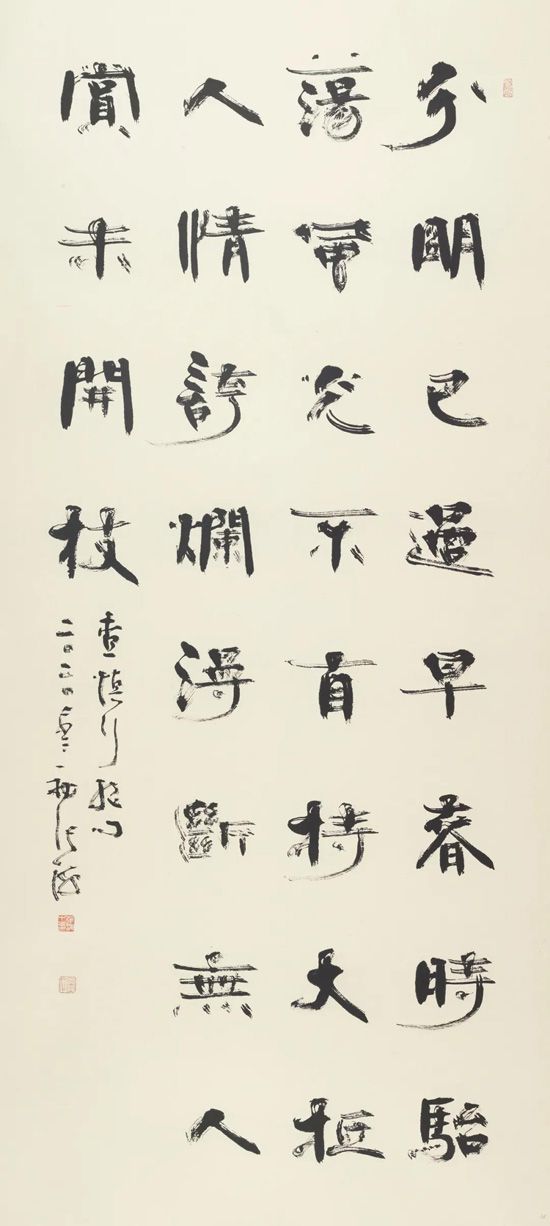 分明已過早春時駘
蕩風光不自持大抵
人情誇爛漫斷無人
賞未開枝
查慎行
二〇二〇年 張海